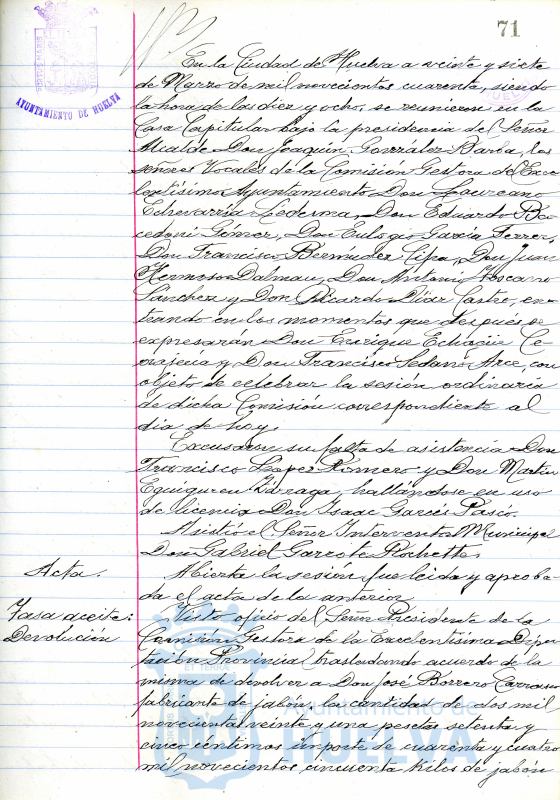 71
AYUNTAMIENTO DE HUELVA
En la Ciudad de Huelva a veinte y siete
de Marzo de mil novecientos cuarenta, siendo
la hora de las diez y ocho, se reunieron en la
Casa Capitular bajo la presidencia del Señor
Alcalde Don Joaquin González Barba, los
señores Vocales de la Comisión Gestora del Exce-
lentísimo Ayuntamiento Don
Echevarría Ledesma, Don Eduardo
Gómez, Don Eulogio García Ferrer,
Don Francisco Bermudez Don Juan
Hermoso Dalmau, Don Antonio
Sánchez y Don Ricardo Díaz Castro, en-
trando en los momentos que después se
expresarán Don Enrique
y Don Francisco Sedano Arce, con
objeto de celebrar la sesión ordinaria
de dicha Comisión correspondiente al
día de hoy.
Excusaron su falta de asistencia Don
Francisco López Romero y Don Martin
Eguiguren hallándose en uso
de licencia Don Isaac Garcés
Asistió el Señor Interventor Municipal
Don Gabriel Garrote
Acta.
Abierta la sesión fue leida y aproba
da el acta de la anterior.
Tasa aceite:
Devolución
Visto oficio del Señor Presidente de la
Comisión Gestora de la Excelentísima Dipu
tación Provincial trasladando acuerdo de la
misma de devolver a Don José Borrero Carrasco
fabricante de jabón, la cantidad de dos mil
novecientas veinte y una pesetas setenta y
cinco céntimos importe de cuarenta y cuatro
mil novecientos cincuenta kilos de jabón
Ayuntamiento de
HUELVA